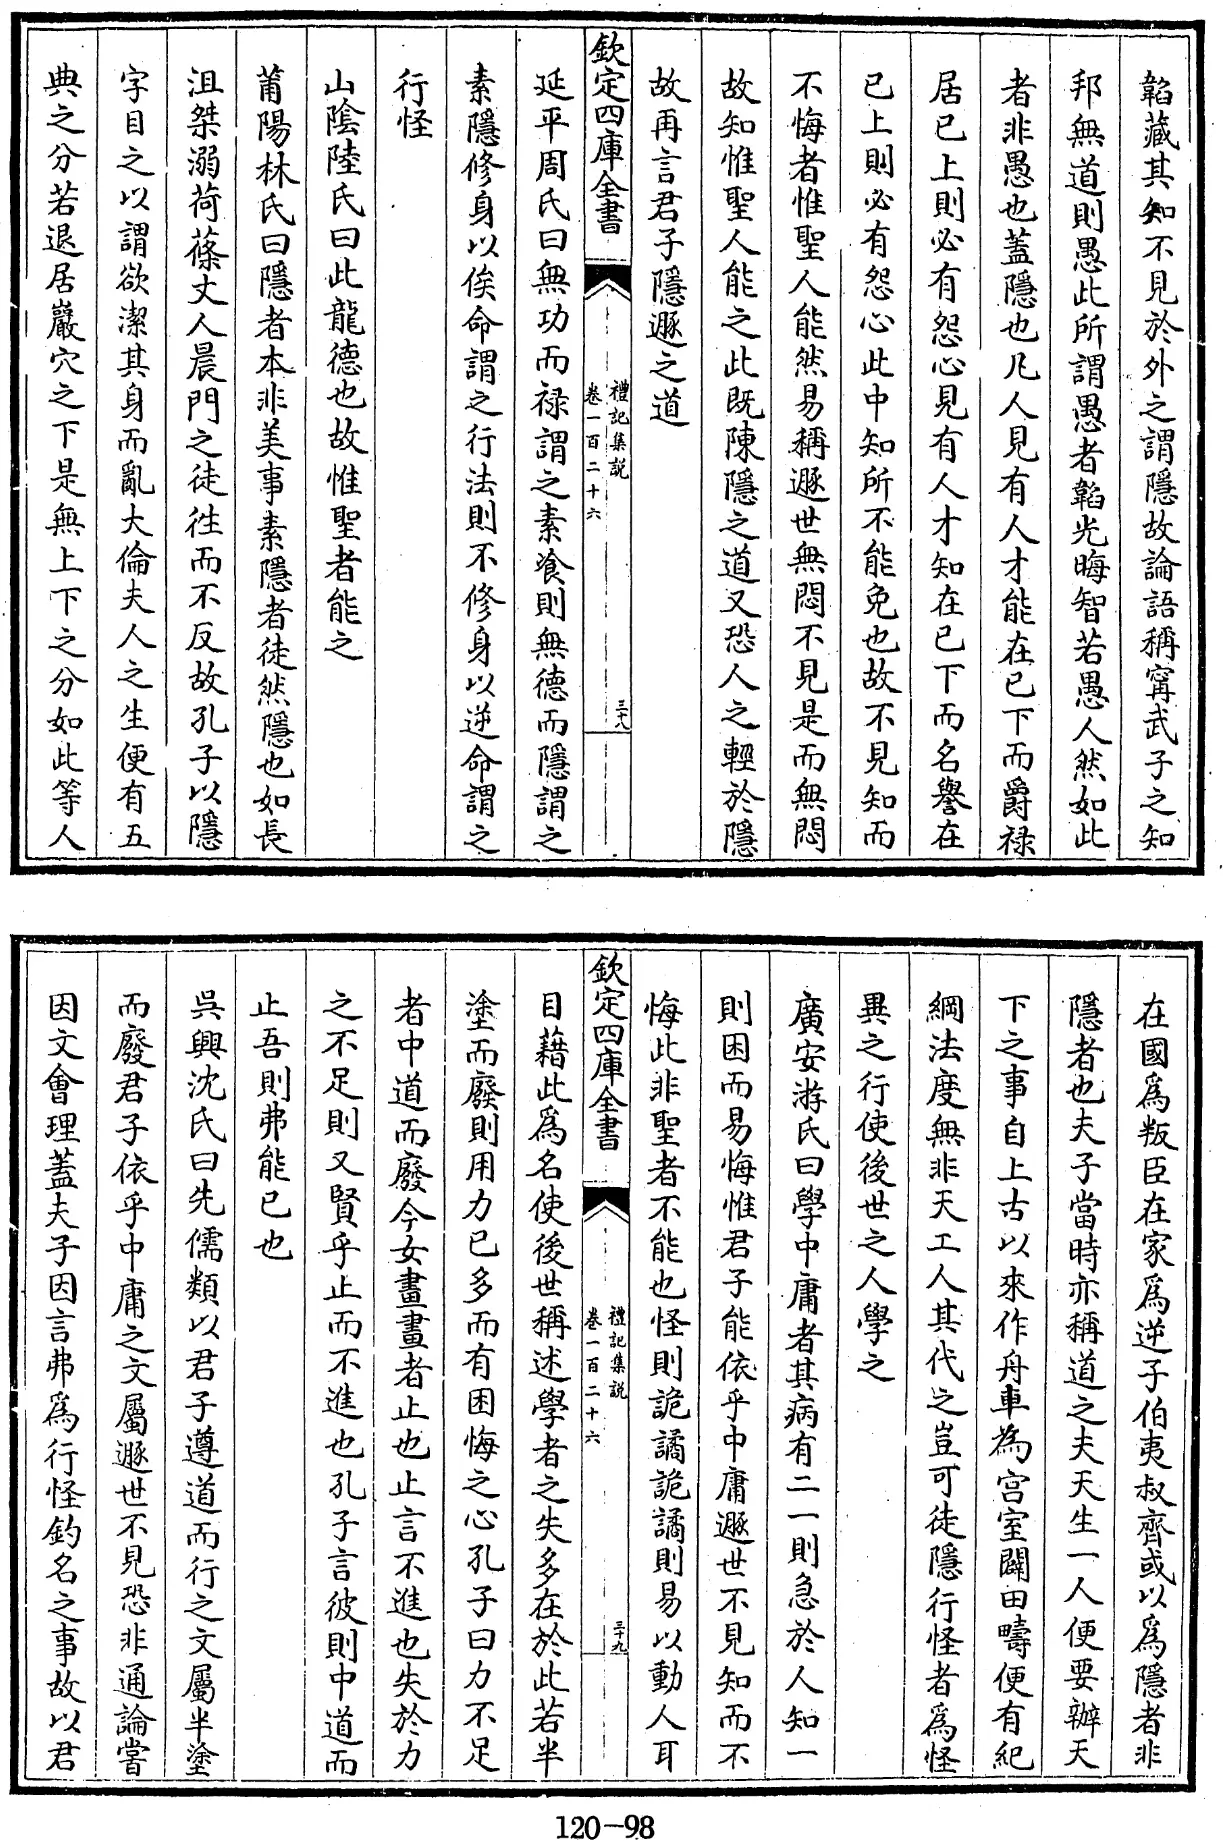 韜藏其知不見於外之謂隱故論語稱甯武子之知
邦無道則愚此所謂愚者韜光晦智若愚人然如此
者非愚也蓋隱也凡人見有人才能在已下而爵禄
居已上則必有怨心見有人才知在已下而名譽在
已上則必有怨心此中知所不能免也故不見知而
不悔者惟聖人能然易稱遯世無悶不見是而無悶
故知惟聖人能之此既陳隱之道又恐人之輕於隱
故再言君子隱遯之道
欽定四庫全書
禮記集説
卷一百二十六
三十八
延平周氏曰無功而禄謂之素飡則無德而隱謂之
素隱修身以俟命謂之行法則不修身以逆命謂之
行怪
山陰陸氏曰此龍德也故惟聖者能之
莆陽林氏曰隱者本非美事素隱者徒然隱也如長
沮桀溺荷蓧丈人晨門之徒徃而不反故孔子以隱
字目之以謂欲潔其身而亂大倫夫人之生便有五
典之分若退居巖穴之下是無上下之分如此等人
在國為叛臣在家為逆子伯夷叔齊或以為隱者非
隱者也夫子當時亦稱道之夫天生一人便要辦天
下之事自上古以來作舟車為宫室闢田疇便有紀
綱法度無非天工人其代之豈可徒隱行怪者為怪
異之行使後世之人學之
廣安游氏曰學中庸者其病有二一則急於人知一
則困而易悔惟君子能依乎中庸遯世不見知而不
悔此非聖者不能也怪則詭譎詭譎則易以動人耳
欽定四庫全書
禮記集説
卷一百二十六
三十九
目藉此為名使後世稱述學者之失多在於此若半
塗而廢則用力已多而有困悔之心孔子曰力不足
者中道而廢今女畫畫者止也止言不進也失於力
之不足則又賢乎止而不進也孔子言彼則中道而
止吾則弗能已也
吳興沈氏曰先儒類以君子遵道而行之文屬半塗
而廢君子依乎中庸之文屬遯世不見恐非通論嘗
因文會理蓋夫子因言弗為行怪釣名之事故以君
120-98